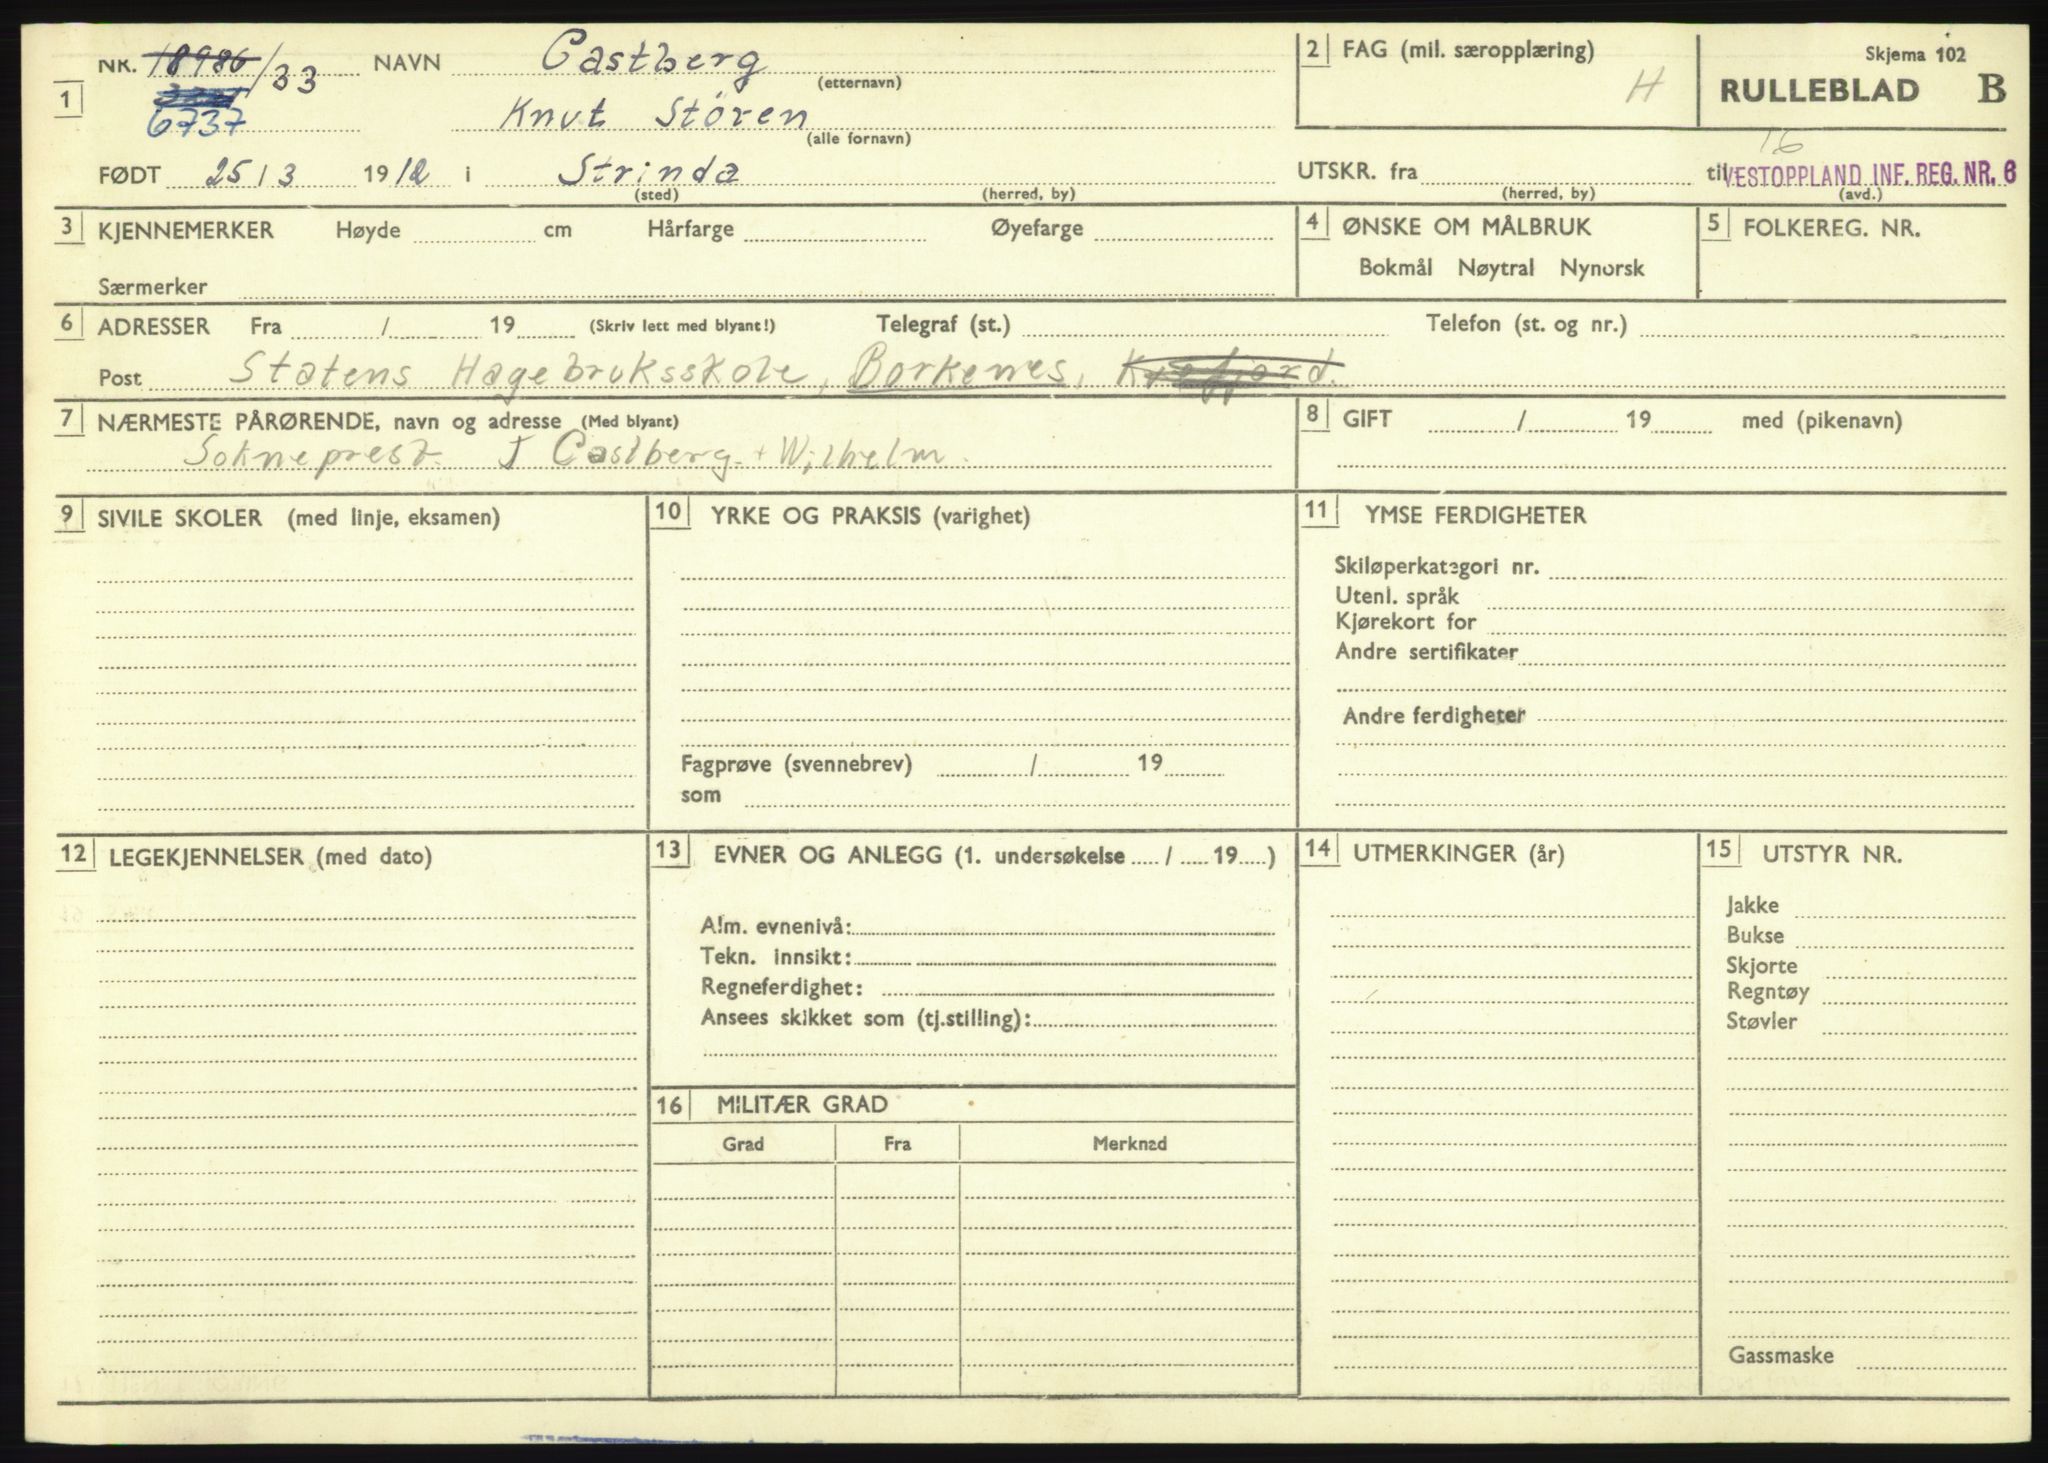 NR. 18986/33 NAVN Castberg (etternavn)
1 6737 Knut Stören (alle fornavn)
FØDT 25/3 1912 i Strinda (sted) (herred, by)
2 FAG (mil. særopplæring) H
Skjema 102
RULLEBLAD B
16
UTSKR. fra (herred, by) til VESTOPPLAND INF. REG. NR. 6 (avd.)
3 KJENNEMERKER Høyde cm Hårfarge Øyefarge
Særmerker
4 ØNSKE OM MÅLBRUK
Bokmål Nøytral Nynorsk
5 FOLKEREG. NR.
6 ADRESSER Fra / 19 (Skriv lett med blyant!) Telegraf (st.) Telefon (st. og nr.)
Post Statens Hagebruksskole, Borkenes, Kvæfjord.
7 NÆRMESTE PÅRØRENDE, navn og adresse (Med blyant)
Sokneprest J Castberg + Wilhelm.
8 GIFT / 19 med (pikenavn)
9 SIVILE SKOLER (med linje, eksamen)
10 YRKE OG PRAKSIS (varighet)
Fagprøve (svennebrev) / 19
som
11 YMSE FERDIGHETER
Skiløperkategori nr.
Utenl. språk
Kjørekort for
Andre sertifikater
Andre ferdigheter
12 LEGEKJENNELSER (med dato)
13 EVNER OG ANLEGG (1. undersøkelse / 19 )
Alm. evnenivå:
Tekn. innsikt:
Regneferdighet:
Ansees skikket som (tj.stilling):
14 UTMERKINGER (år)
15 UTSTYR NR.
Jakke
Bukse
Skjorte
Regntøy
Støvler
Gassmaske
16 MILITÆR GRAD
Grad Fra Merknad